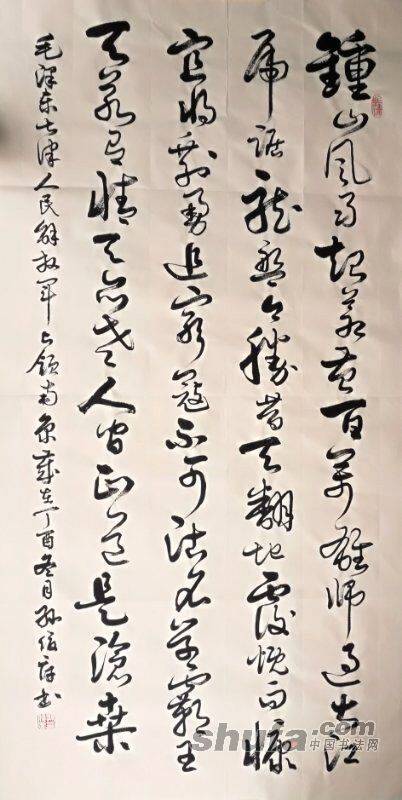 鍾山風雨起蒼黃百萬雄師過大江
虎踞龍盤今勝昔天翻地覆慨而慷
宜將剩勇追窮寇不可沽名學霸王
天若有情天亦老人間正道是滄桑
毛澤東七律人民解放軍占領南京歲在丁酉冬月孫書
shufa.com
中国书法网